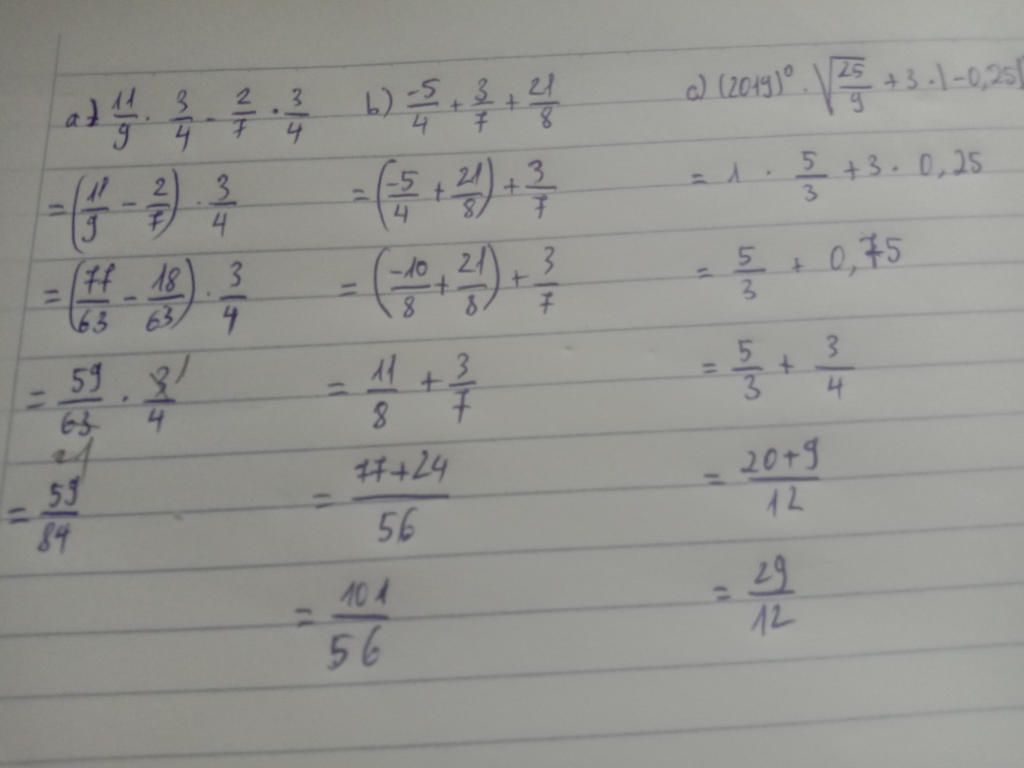 a) 11/9 · 3/4 - 2/7 · 3/4
= (11/9 - 2/7) · 3/4
= (77/63 - 18/63) · 3/4
= 59/63 · 3/4 1
21
= 59/84
b) -5/4 + 3/7 + 21/8
= (-5/4 + 21/8) + 3/7
= (-10/8 + 21/8) + 3/7
= 11/8 + 3/7
= 77+24/56
= 101/56
c) (2019)⁰ · √25/9 + 3 · |-0,25|
= 1 · 5/3 + 3 · 0,25
= 5/3 + 0,75
= 5/3 + 3/4
= 20+9/12
= 29/12